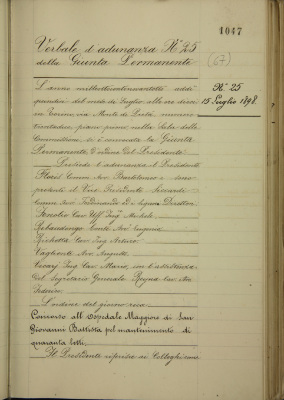 1047
Verbale d'adunanza N° 25
della Giunta Permanente
(67)
N° 25
15 Luglio 1898.
L'anno milleottocentonovantotto addì
quindici del mese di Luglio alle ore dieci
in Torino via Monte di Pietà, numero
trentadue piano primo nella Sala delle
Commissioni, si è convocata la Giunta
Permanente, d'ordine del Presidente.
Presiede l'adunanza il Presidente
Comm Avv Bartolomeo e sono
presenti il Vice Presidente
Comm Avv Ferdinando ed i signori Direttori
Cav Uff Ing Michele
Rebaudengo Conte Avv Eugenio
Cav Ing Arturo
Avv Augusto
Ing Cav Mario, con l'assistenza
del Segretario Generale Cav Avv
Federico.
L'ordine del giorno reca:
Concorso all'Ospedale Maggiore di San
Giovanni Battista pel mantenimento di
quaranta letti.
Il Presidente ai Colleghi come